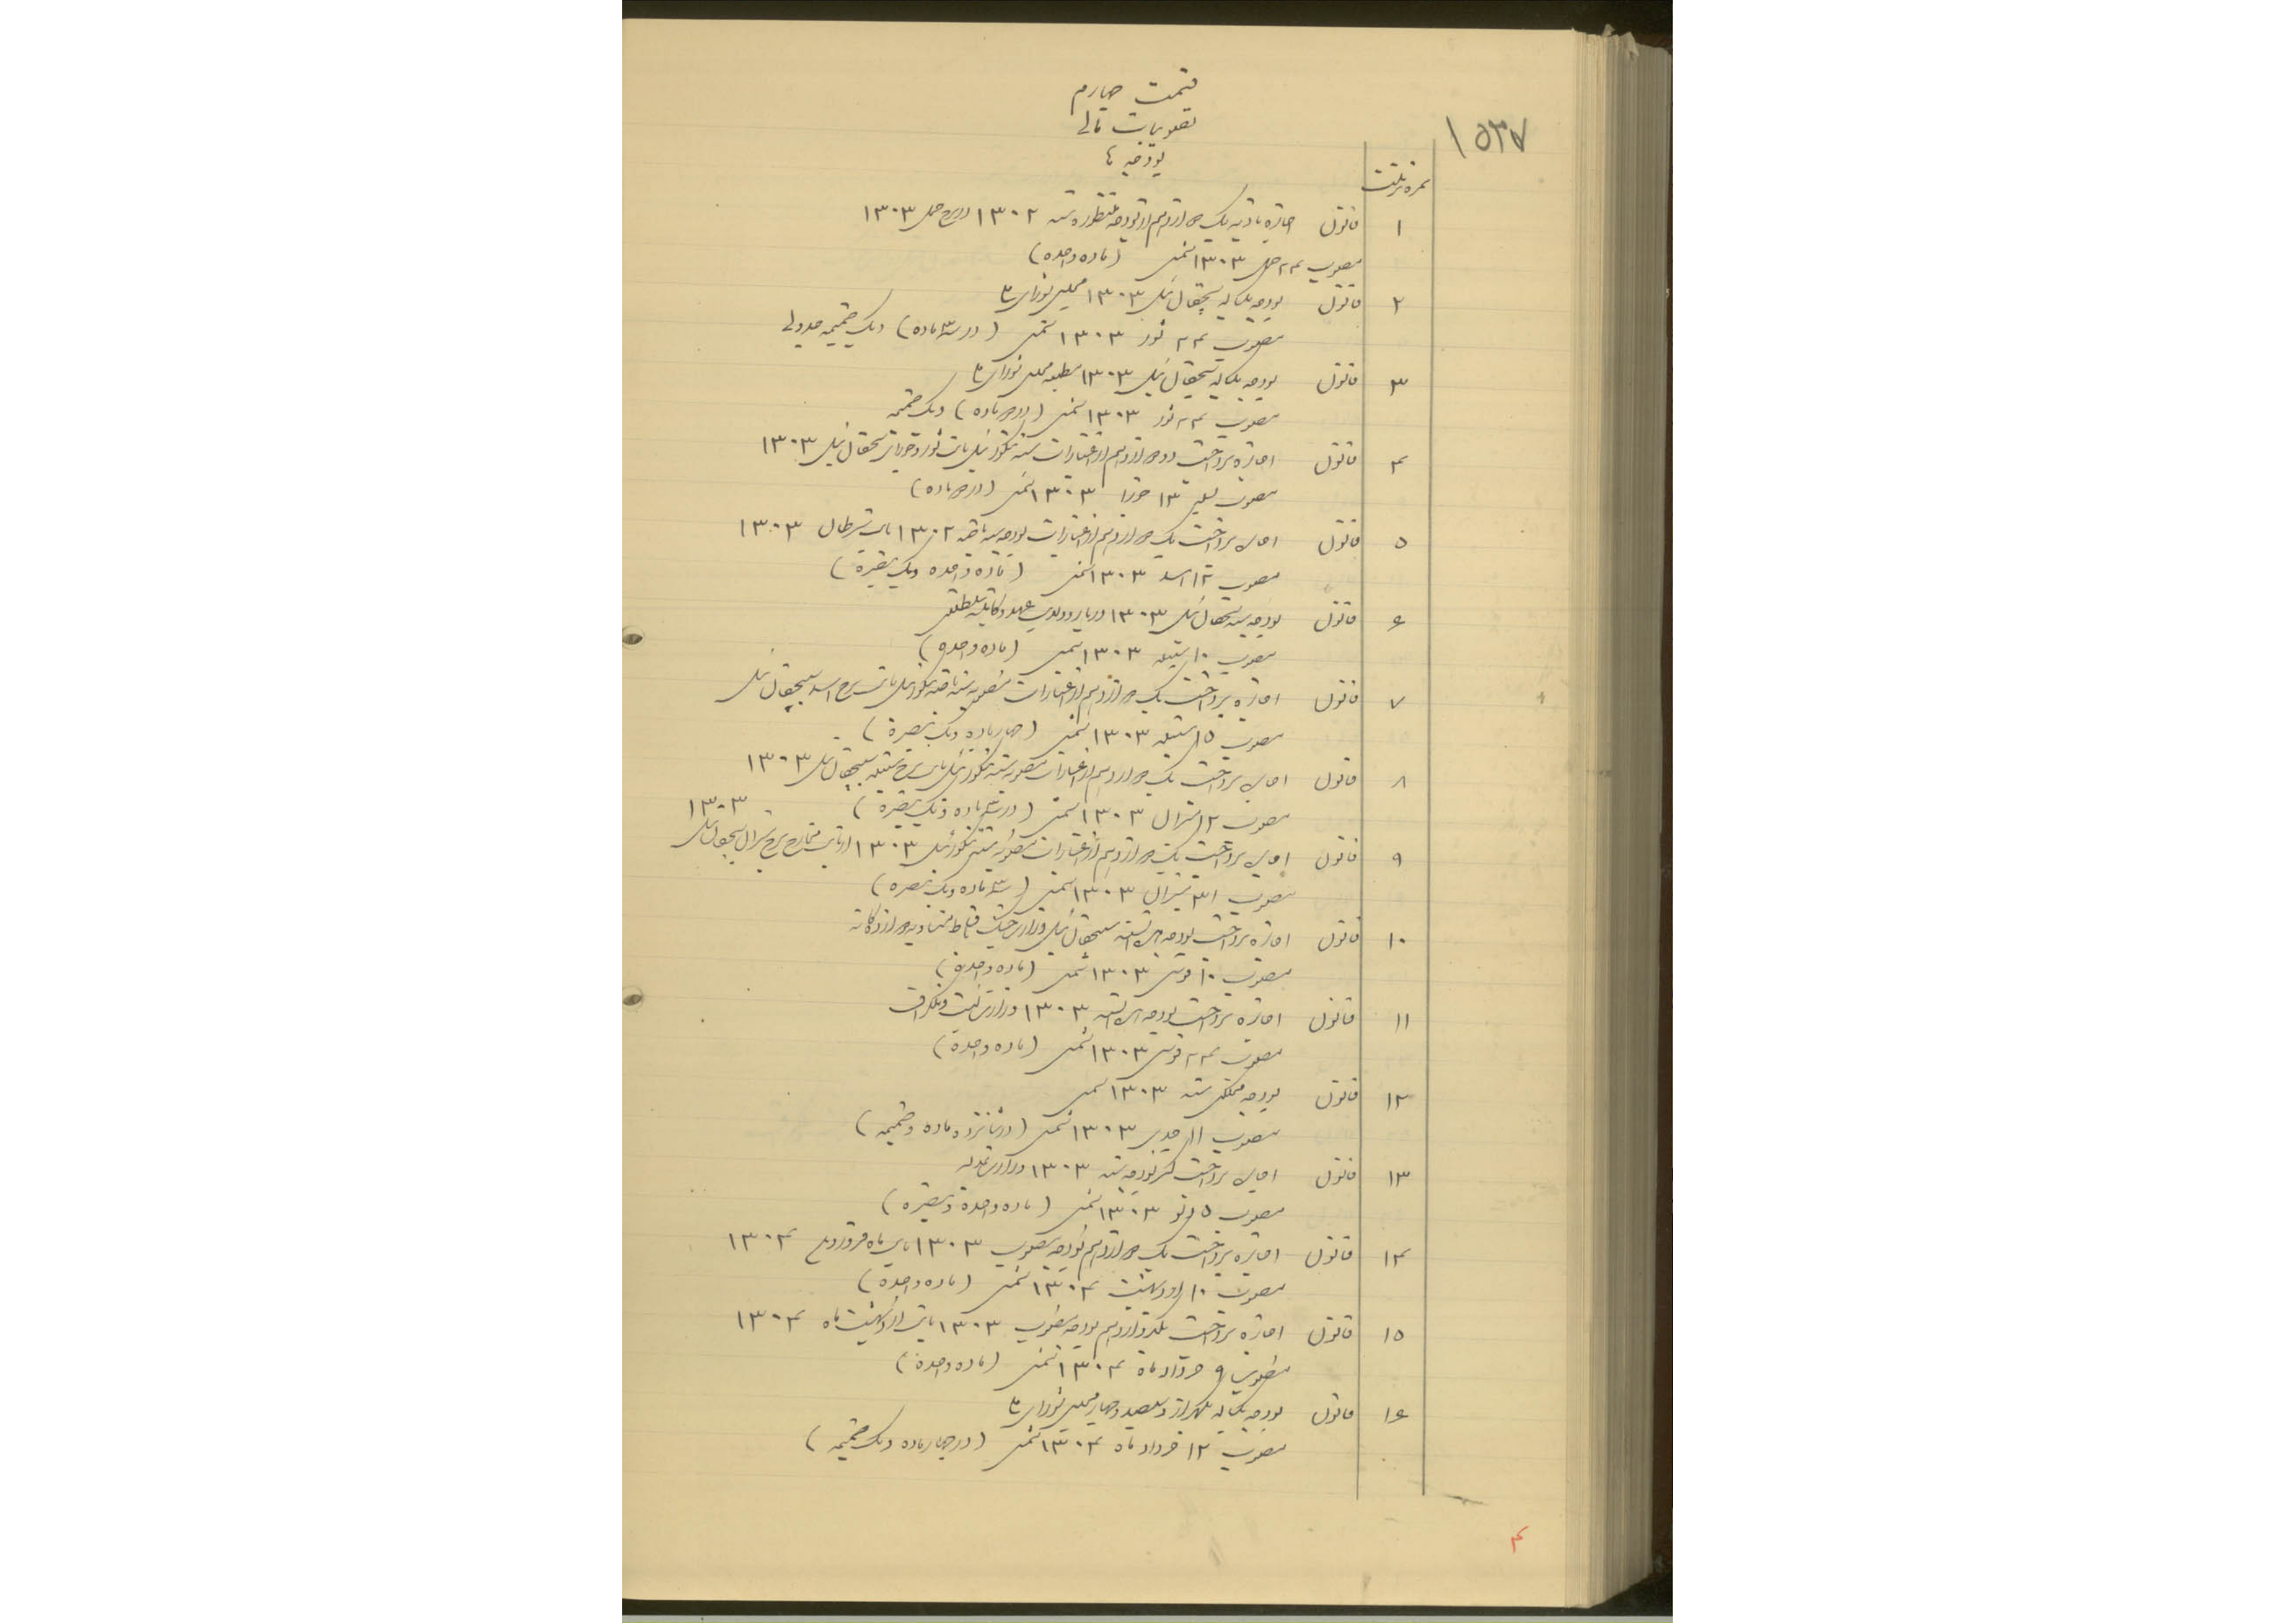 قسمت چهارم
تصویبات مالی
بودجه ها
۱۵۳۷
نمره ترتیب
۱ قانون اجازه تادیه یک دوازدهم از بودجه منظوره سنه ۱۳۰۲ در برج حمل ۱۳۰۳
مصوب ۲۴ حمل ۱۳۰۳ شمسی (ماده واحده)
۲ قانون بودجه یکساله سیچقان ئیل ۱۳۰۳ مجلس شورای ملی
مصوب ۲۴ ثور ۱۳۰۳ شمسی (در سه ماده) و یک ضمیمه جدولی
۳ قانون بودجه یکساله سیچقان ئیل ۱۳۰۳ مطبعه مجلس شورای ملی
مصوب ۲۴ ثور ۱۳۰۳ شمسی (در دو ماده) و یک ضمیمه
۴ قانون اجازه پرداخت دو دوازدهم از اعتبارات سنه تنگوزئیل بابت ثور و جوزای سیچقان ئیل ۱۳۰۳
مصوب لیله ۱۳ جوزا ۱۳۰۳ شمسی (در دو ماده)
۵ قانون اجازه پرداخت یک دوازدهم از اعتبارات بودجه سنه ماضیه ۱۳۰۲ بابت سرطان ۱۳۰۳
مصوب ۱۲ اسد ۱۳۰۳ شمسی (ماده واحده و یک تبصره)
۶ قانون بودجه سنه سیچقان ئیل ۱۳۰۳ دربار و ولایت عهد و کابینه سلطنتی
مصوب ۱۰ سنبله ۱۳۰۳ شمسی (ماده واحده)
۷ قانون اجازه پرداخت یک دوازدهم از اعتبارات مصوبه سنه ماضیه تنگوزئیل بابت برج اسد سیچقان ئیل
مصوب ۱۵ سنبله ۱۳۰۳ شمسی (چهار ماده و یک تبصره)
۸ قانون اجازه پرداخت یک دوازدهم از اعتبارات مصوبه سنه تنگوزئیل بابت برج سنبله سیچقان ئیل ۱۳۰۳
مصوب ۱۲ میزان ۱۳۰۳ شمسی (در سه ماده و یک تبصره)
۹ قانون اجازه پرداخت یک دوازدهم از اعتبارات مصوبه سنه تنگوزئیل ۱۳۰۳ از بابت مخارج برج میزان سیچقان ئیل ۱۳۰۳
مصوب ۳۱ میزان ۱۳۰۳ شمسی (سه ماده و یک تبصره)
۱۰ قانون اجازه پرداخت بودجه هذه السنه سیچقان ئیل وزارت جنگ به اقساط متساویه دوازده گانه
مصوب ۱۰ قوس ۱۳۰۳ شمسی (ماده واحده)
۱۱ قانون اجازه پرداخت بودجه هذه السنه ۱۳۰۳ وزارت پست و تلگراف
مصوب ۲۴ قوس ۱۳۰۳ شمسی (ماده واحده)
۱۲ قانون بودجه مملکتی سنه ۱۳۰۳ شمسی
مصوب ۱۱ جدی ۱۳۰۳ شمسی (در شانزده ماده و ضمیمه)
۱۳ قانون اجازه پرداخت کسر بودجه سنه ۱۳۰۳ وزارت عدلیه
مصوب ۱۵ دلو ۱۳۰۳ شمسی (ماده واحده و تبصره)
۱۴ قانون اجازه پرداخت یک دوازدهم بودجه مصوب ۱۳۰۳ بابت ماه فروردین ۱۳۰۴
مصوب ۱۰ اردیبهشت ۱۳۰۴ شمسی (ماده واحده)
۱۵ قانون اجازه پرداخت یکدوازدهم بودجه مصوب ۱۳۰۳ بابت اردیبهشت ماه ۱۳۰۴
مصوب ۹ خرداد ماه ۱۳۰۴ شمسی (ماده واحده)
۱۶ قانون بودجه یکساله یکهزار و سیصد و چهار مجلس شورای ملی
مصوب ۱۲ خرداد ماه ۱۳۰۴ شمسی (در چهار ماده و یک ضمیمه)
۴